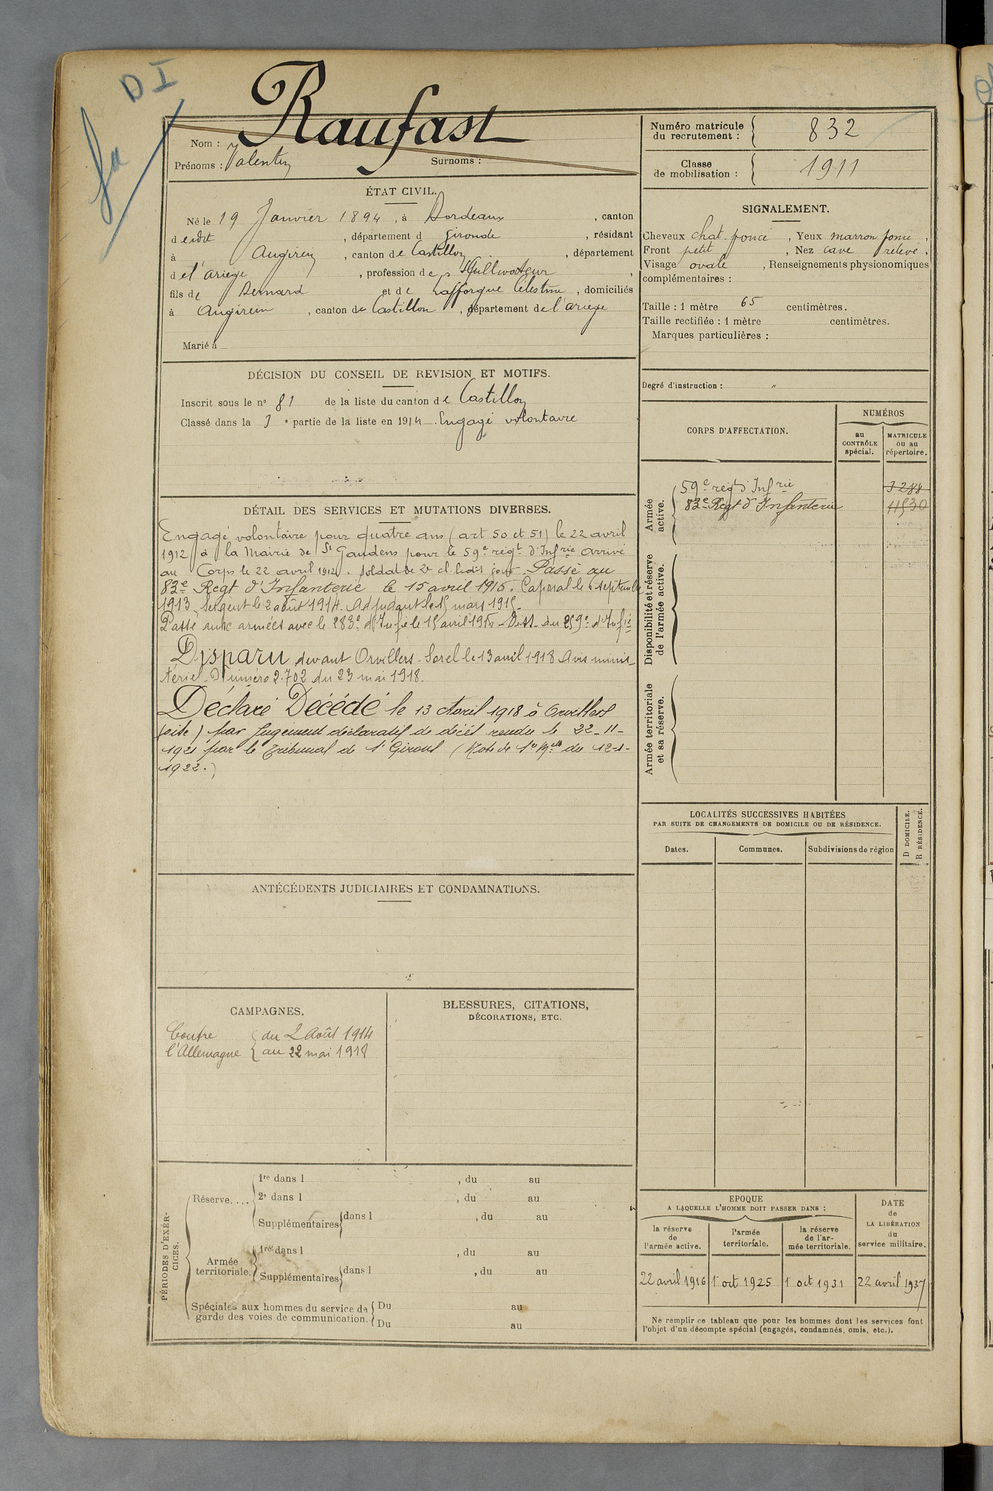 D I
Raufast
Nom :
Prénoms : Valentin Surnoms :
Numéro matricule du recrutement : 832
Classe de mobilisation : 1911
ÉTAT CIVIL.
Né le 19 Janvier 1894, à Bordeaux, canton
dudit, département d Gironde, résidant
à Augirein, canton de Castillon, département
de l'ariège, profession de
fils de Bernard et de Lafforgue Célestine, domiciliés
à Augirein, canton de Castillon, département de l'ariège
Marié à
SIGNALEMENT.
Cheveux chat. foncé, Yeux marron foncé,
Front petit, Nez cave relevé,
Visage ovale, Renseignements physionomiques
complémentaires :
Taille : 1 mètre 65 centimètres.
Taille rectifiée : 1 mètre centimètres.
Marques particulières :
Degré d'instruction : "
DÉCISION DU CONSEIL DE REVISION ET MOTIFS.
Inscrit sous le n° 81 de la liste du canton de Castillon
Classé dans la 3 e partie de la liste en 1914. Engagé volontaire
CORPS D'AFFECTATION.
NUMÉROS
au CONTRÔLE spécial.
MATRICULE ou au répertoire.
Armée active.
59e régt d'Infrie 3288
83e Régt d'Infanterie 11530
Disponibilité et réserve de l'armée active.
Armée territoriale et sa réserve.
DÉTAIL DES SERVICES ET MUTATIONS DIVERSES.
Engagé volontaire pour quatre ans (art 50 et 51) le 22 avril
1912 à la Mairie de St Gaudens pour le 59e régt d'Infrie arrivé
au Corps le 22 avril 1912. soldat de 2e cl. Passé au
83e Régt d'Infanterie le 15 avril 1915. Caporal le septembre
1913, Sergent le 2 août 1914. Adjudant le 15 mars 1915.
Passé aux armées avec le 283e d'Infie le 15 avril 1915 - du d'Infie
Disparu devant Orvillers-Sorel le 13 avril 1918 Avis minis-
tériel Numéro 2.702 du 23 mai 1918.
Déclaré Décédé le 13 Avril 1918 à Orvillers
(Oise) par Jugement déclaratif de décès rendu le 22-11-
1921 par le Tribunal de St Girons (du 12-1-
1922.)
LOCALITÉS SUCCESSIVES HABITÉES
PAR SUITE DE CHANGEMENTS DE DOMICILE OU DE RÉSIDENCE.
Dates. Communes. Subdivisions de région
D DOMICILE.
R RÉSIDENCE.
ANTÉCÉDENTS JUDICIAIRES ET CONDAMNATIONS.
CAMPAGNES.
Contre l'Allemagne { du 2 Août 1914
au 22 mai 1918
BLESSURES, CITATIONS,
DÉCORATIONS, ETC.
PÉRIODES D'EXERCICES.
Réserve.... 1re dans l , du au
2e dans l , du au
Supplémentaires dans l , du au
Armée territoriale. 1re dans l , du au
Supplémentaires dans l , du au
Spéciales aux hommes du service de garde des voies de communication. Du au
Du au
EPOQUE
A LAQUELLE L'HOMME DOIT PASSER DANS :
la réserve de l'armée active.
l'armée territoriale.
la réserve de l'armée territoriale.
DATE de LA LIBÉRATION du service militaire.
22 avril 1916 1 oct 1925 1 oct 1931 22 avril 1937
Ne remplir ce tableau que pour les hommes dont les services font
l'objet d'un décompte spécial (engagés, condamnés, omis, etc.).